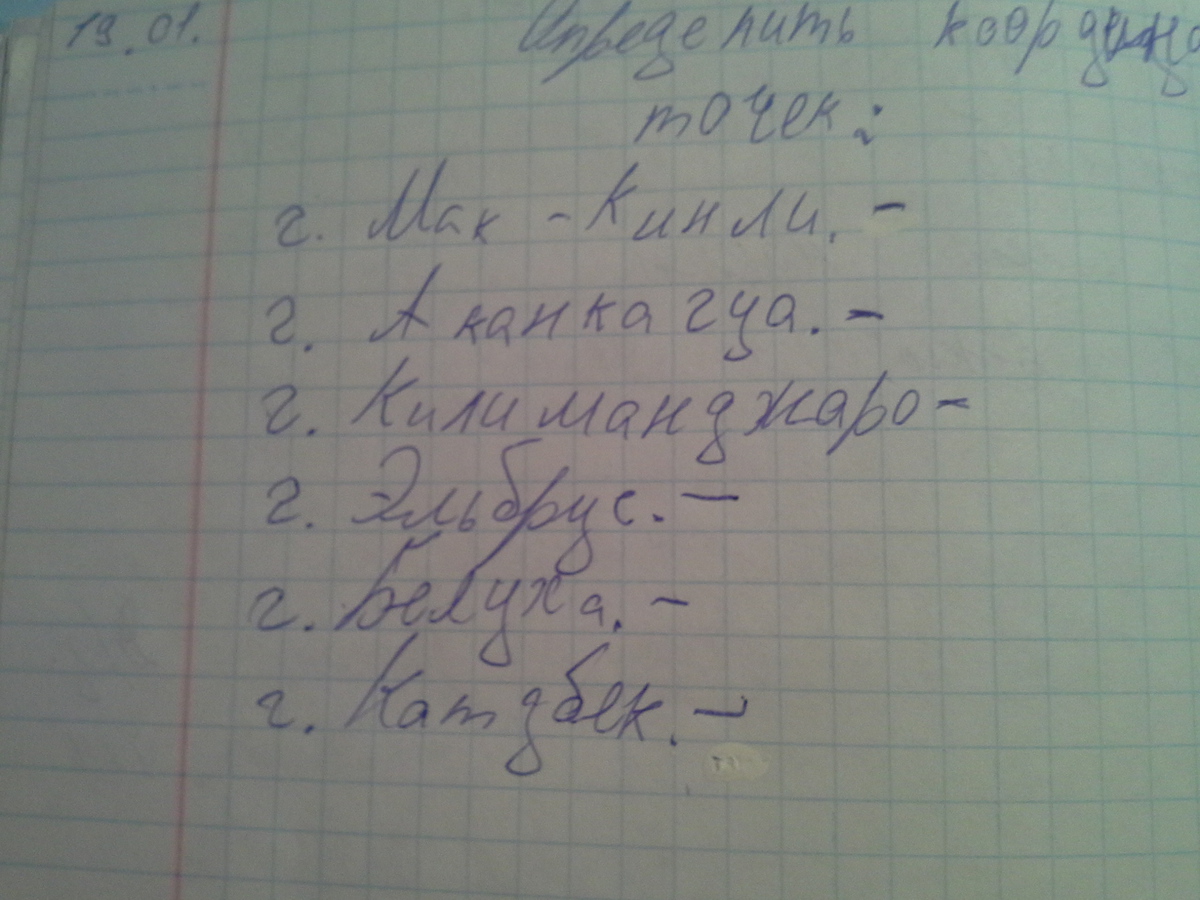 19.01.
Определить
точек:
г. Мак - Кинли. -
г. Аканкагуа. -
г. Килиманджаро -
г. Эльбрус. -
г. Белуха. -
г. Катдбек. -